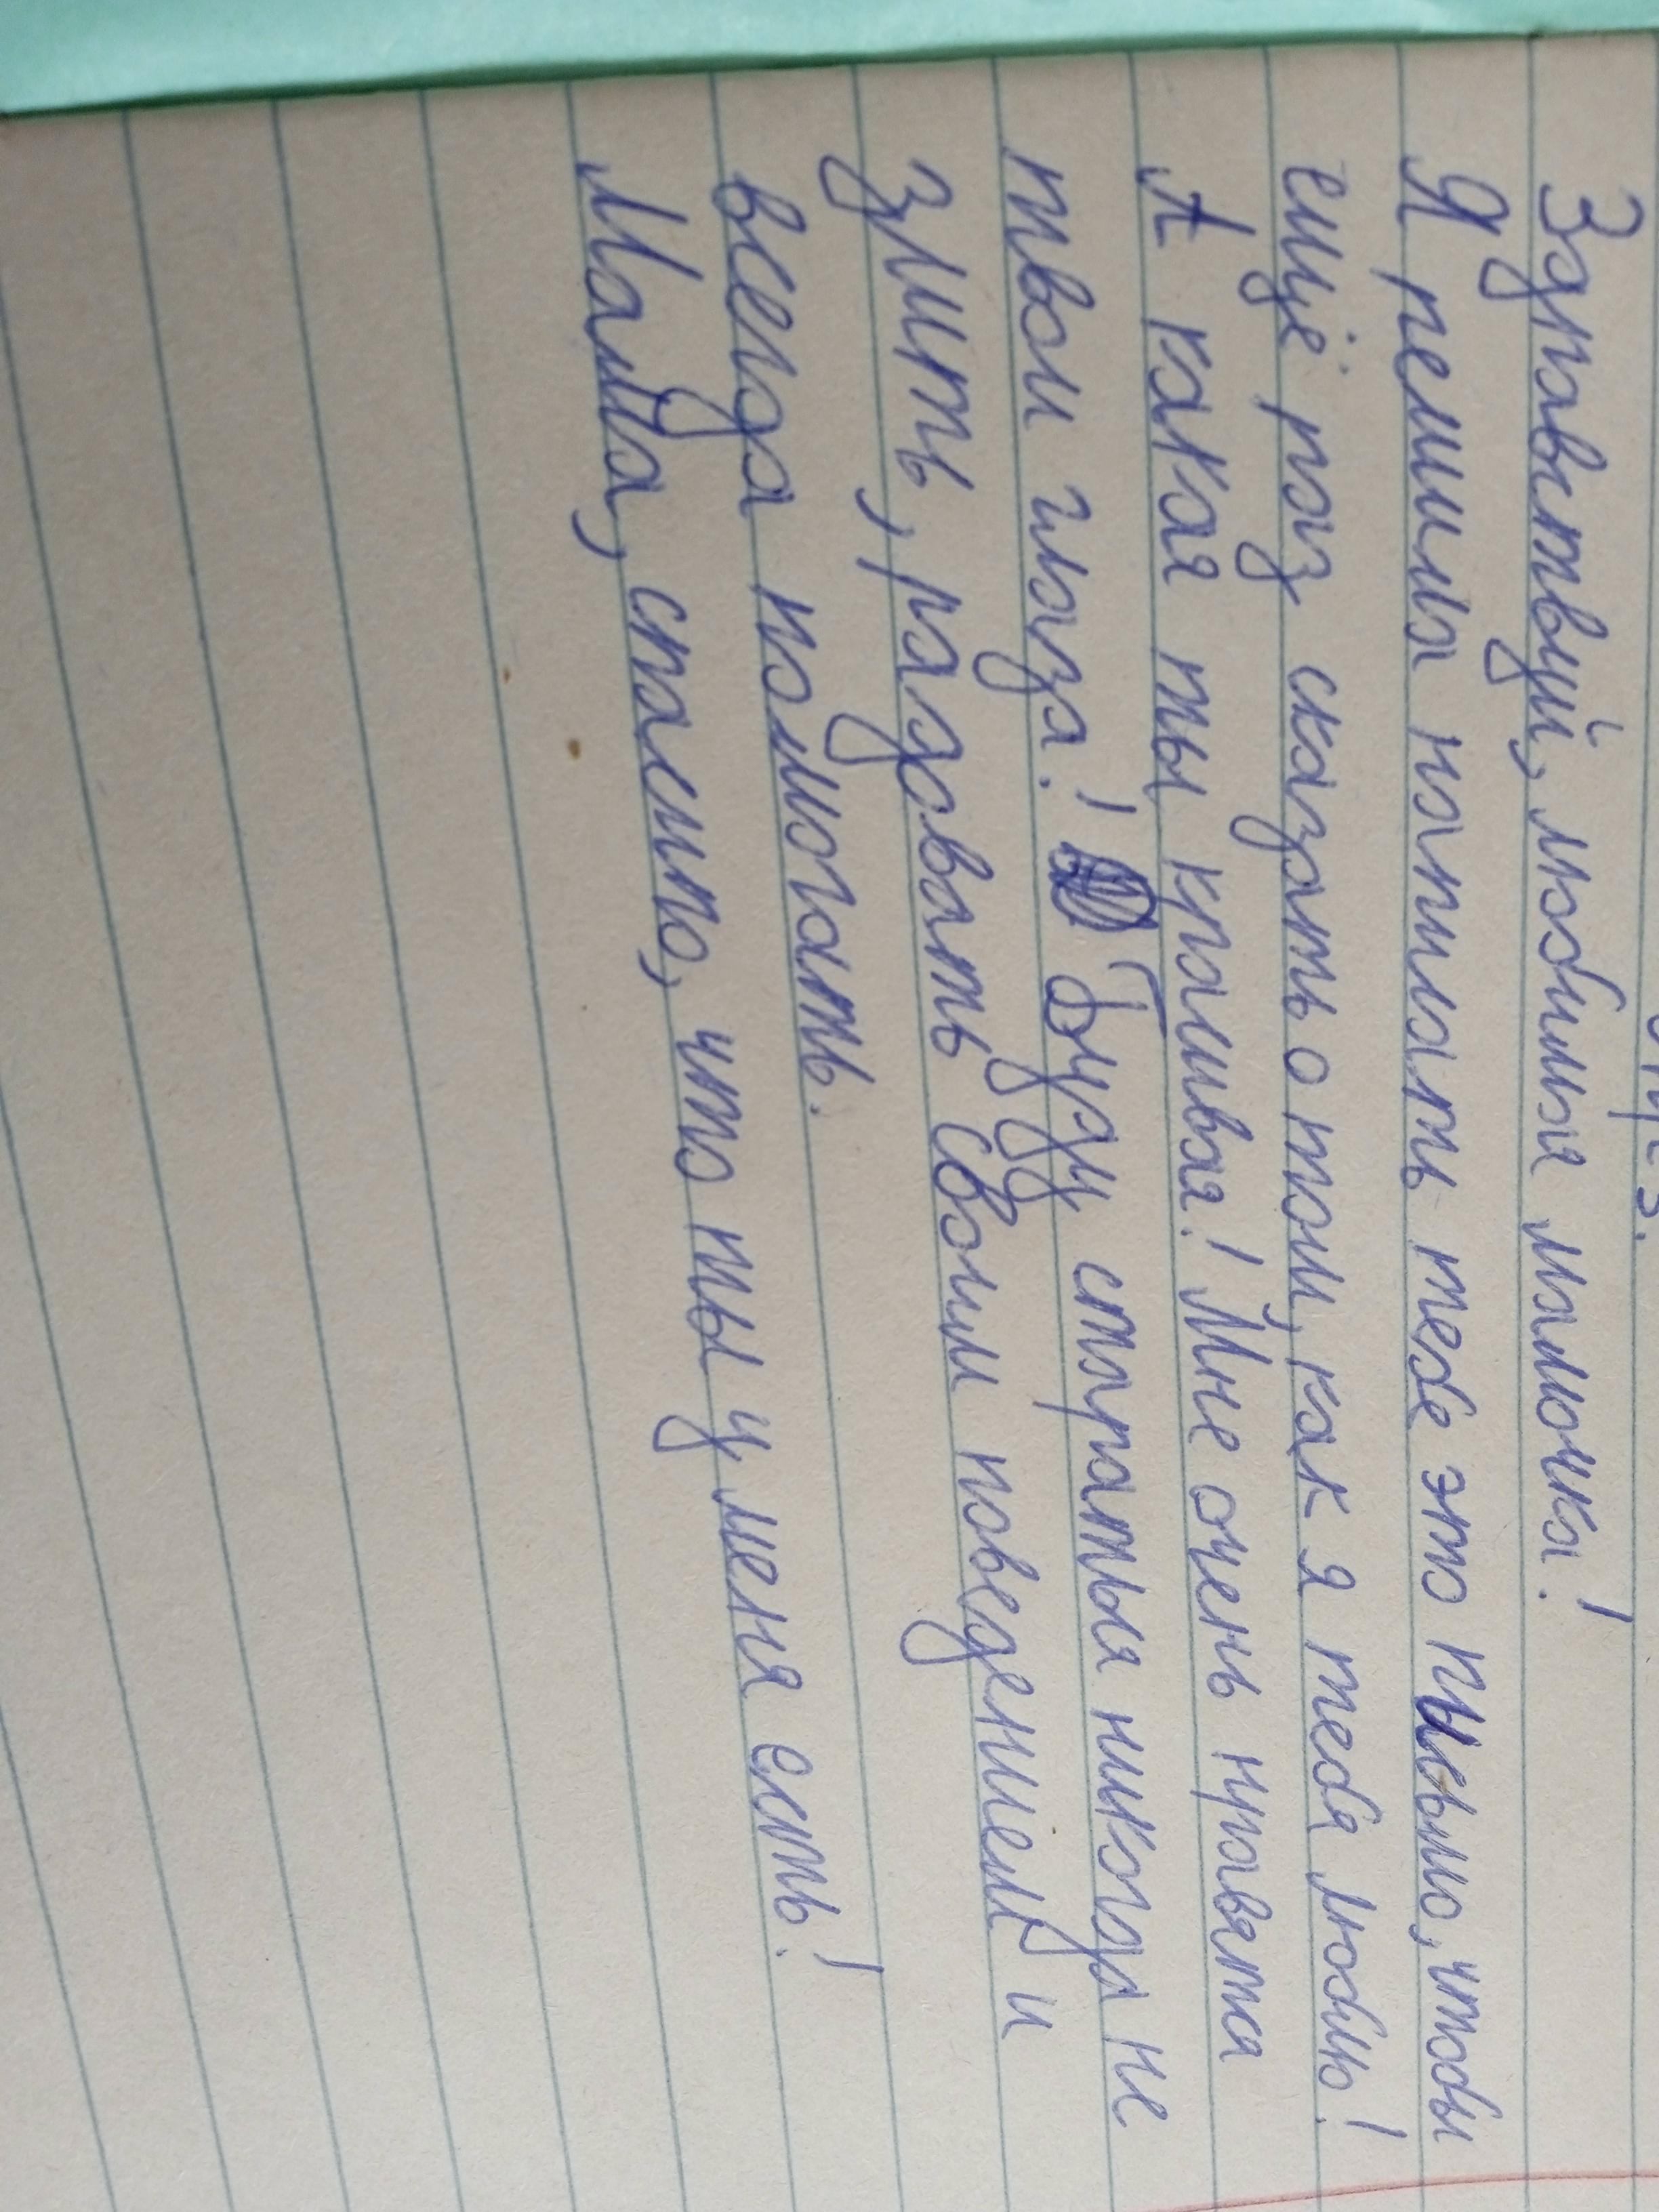 Здравствуй, любимая мамочка!
Я решила написать тебе это письмо, чтобы
ещё раз сказать о том, как я тебя люблю!
А какая ты красивая! Мне очень нравятся
твои глаза! Буду стараться никогда не
злить, радовать своим поведением и
всегда помогать.
Мама, спасибо, что ты у меня есть!